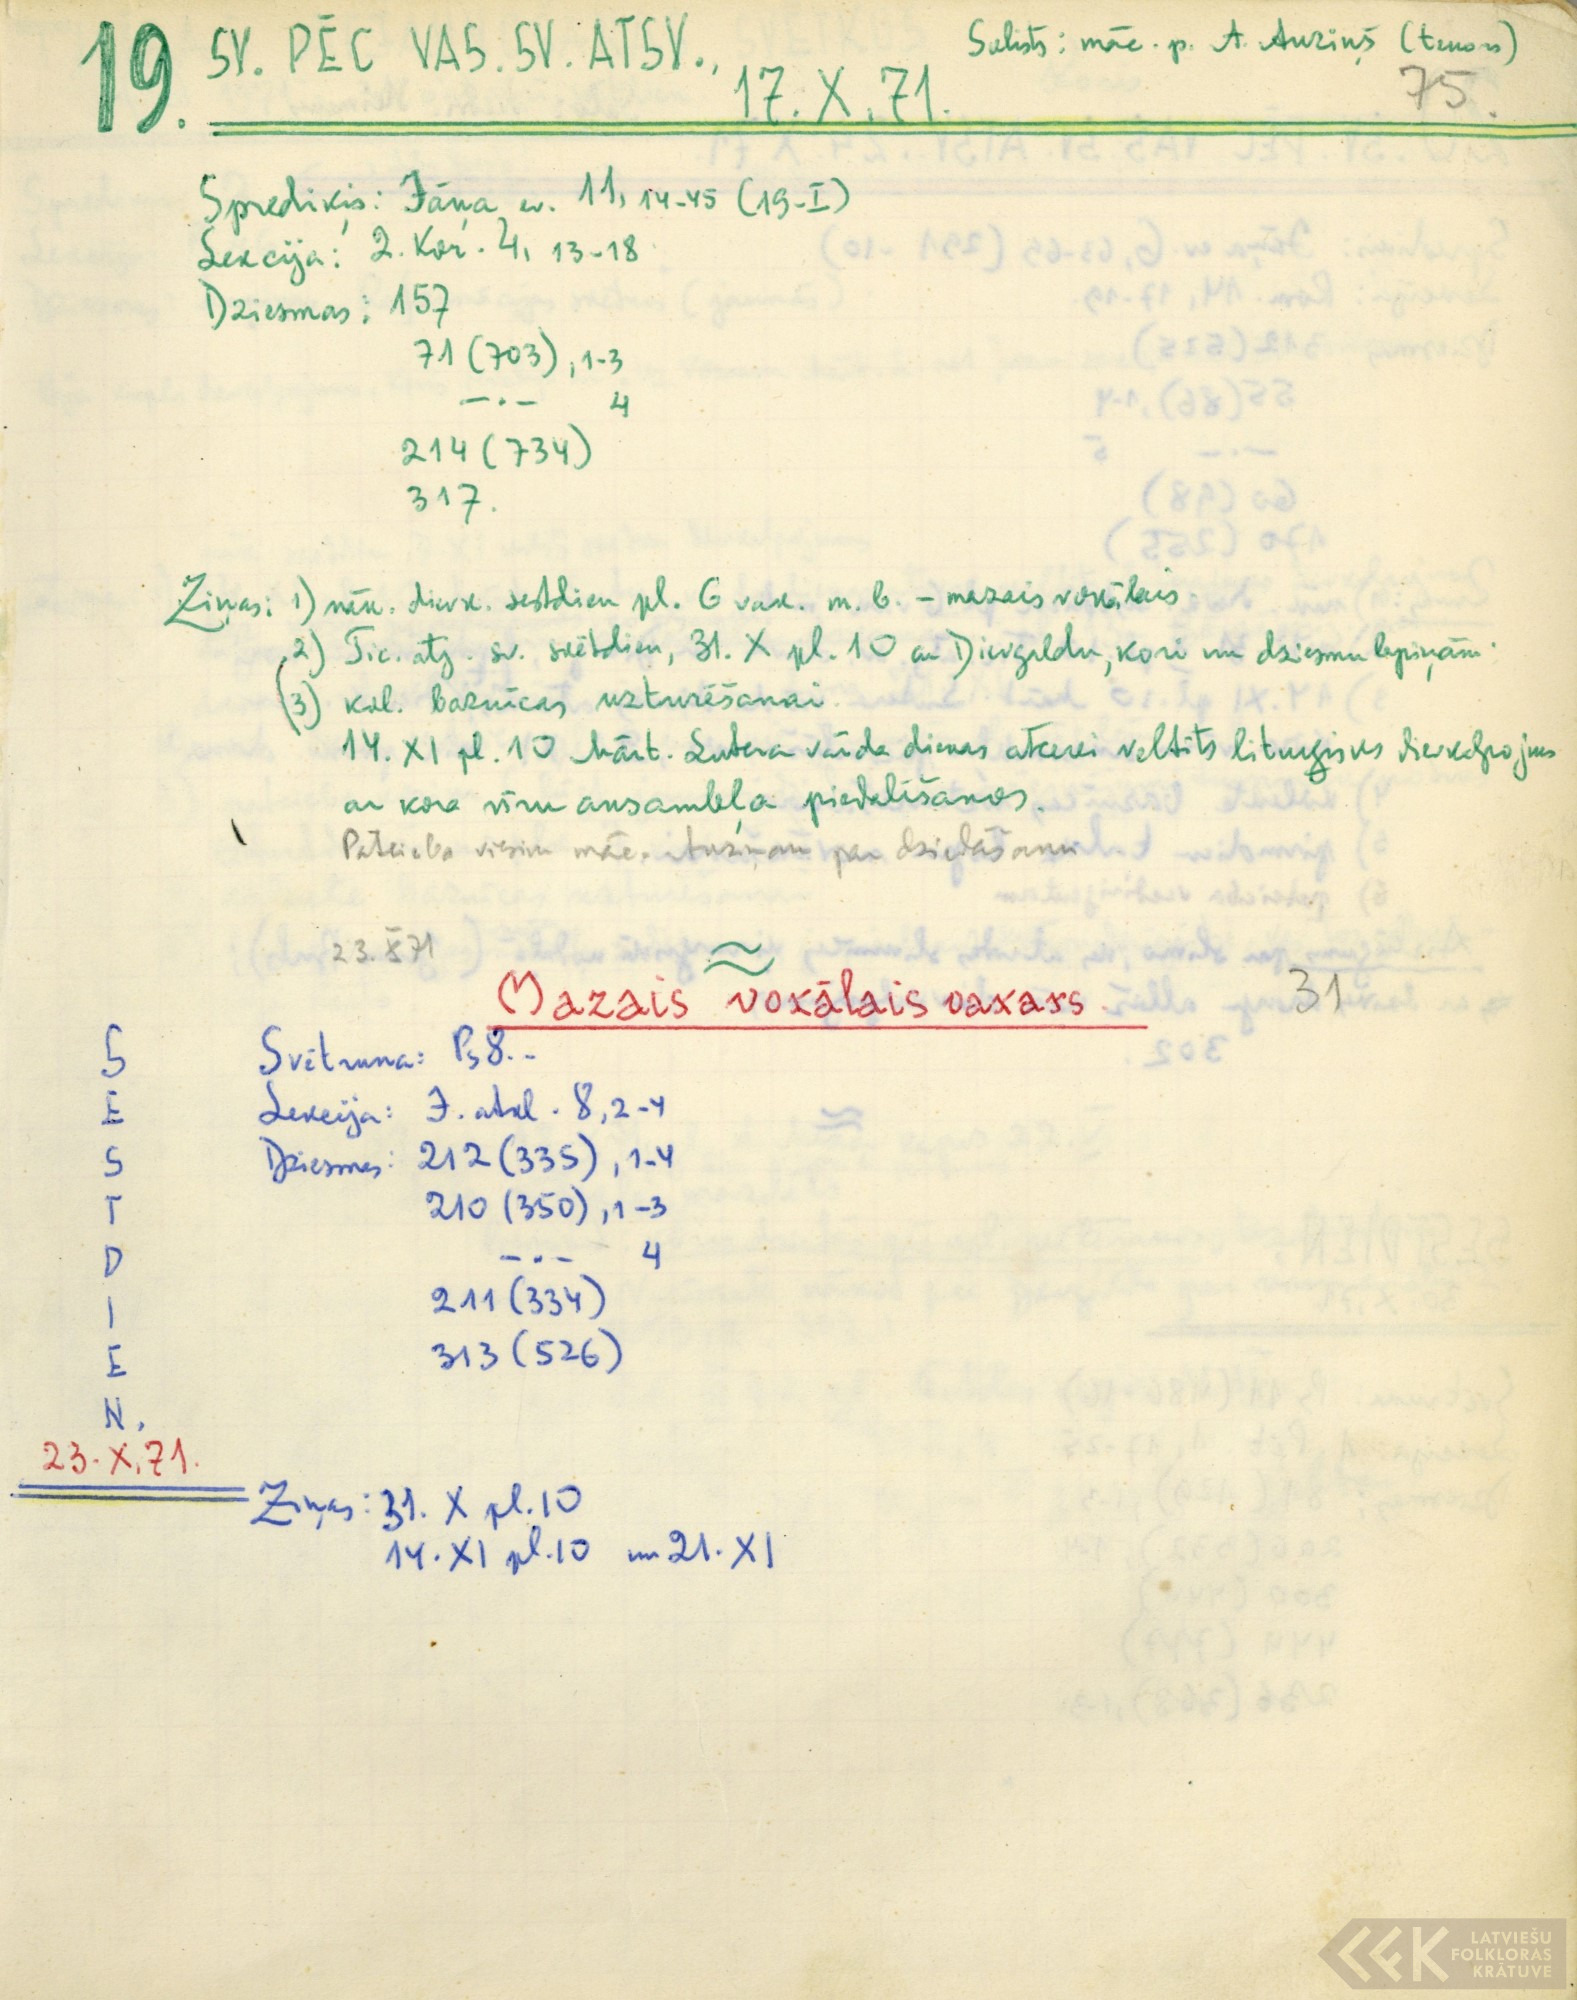 19. SV. PĒC VAS. SV. ATSV., 17. X. 71.
Solists: māc. p. A. Auziņš (tenors)
75.
Sprediķis: Jāņa ev. 11, 14-45 (19-I)
Lekcija: 2. Kor. 4, 13-18
Dziesmas: 157
71 (703), 1-3
—·— 4
214 (734)
317.
Ziņas: 1) nāk. dievk. sestdien pl. 6 vak. m. b. – mazais vokālais
2) Tic. atj. sv. svētdien, 31. X pl. 10 ar Dievgaldu, kori un dziesmu lapiņām
(3) kol. baznīcas uzturēšanai.
14. XI pl. 10 Mārt. Lutera vārda dienas atcerei veltīts liturģisks dievkalpojums
ar kora vīru ansambļa piedalīšanos.
Pateicība viesim māc. Auziņam par dziedāšanu
23. X 71
≈
Mazais vokālais vakars.
31
SESTDIEN.
23. X. 71.
Svētruna: Ps 8..
Lekcija: J. atkl. 8, 2-4
Dziesmas: 212 (335), 1-4
210 (350), 1-3
—·— 4
211 (334)
313 (526)
Ziņas: 31. X pl. 10
14. XI pl. 10 un 21. XI
LATVIEŠU
FOLKLORAS
KRĀTUVE